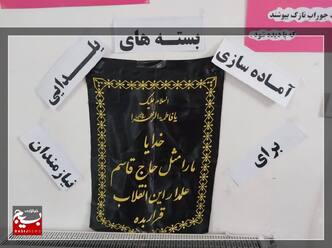 آماده سازی
بسته های
یلدایی
برای
نیازمندان
السلام علیک
یا فاطمة الزهرا
خدایا
ما را مثل حاج قاسم
علمدار این انقلاب
قرار بده
جوراب نازک بپوشند
که پا دیده شود
بسیج